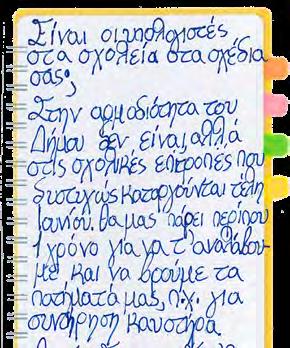 Είναι οι υπολογιστές
στα σχολεία στα σχέδια
σας;
Στην αρμοδιότητα του
Δήμου δεν είναι, αλλά
στις σχολικές επιτροπές που
δυστυχώς καταργούνται τέλη
Ιουνίου. Θα μας πάρει περίπου
1 χρόνο για να τ' αναλάβου-
με και να βρούμε τα
πατήματά μας, π.χ. για
συντήρηση καυστήρα